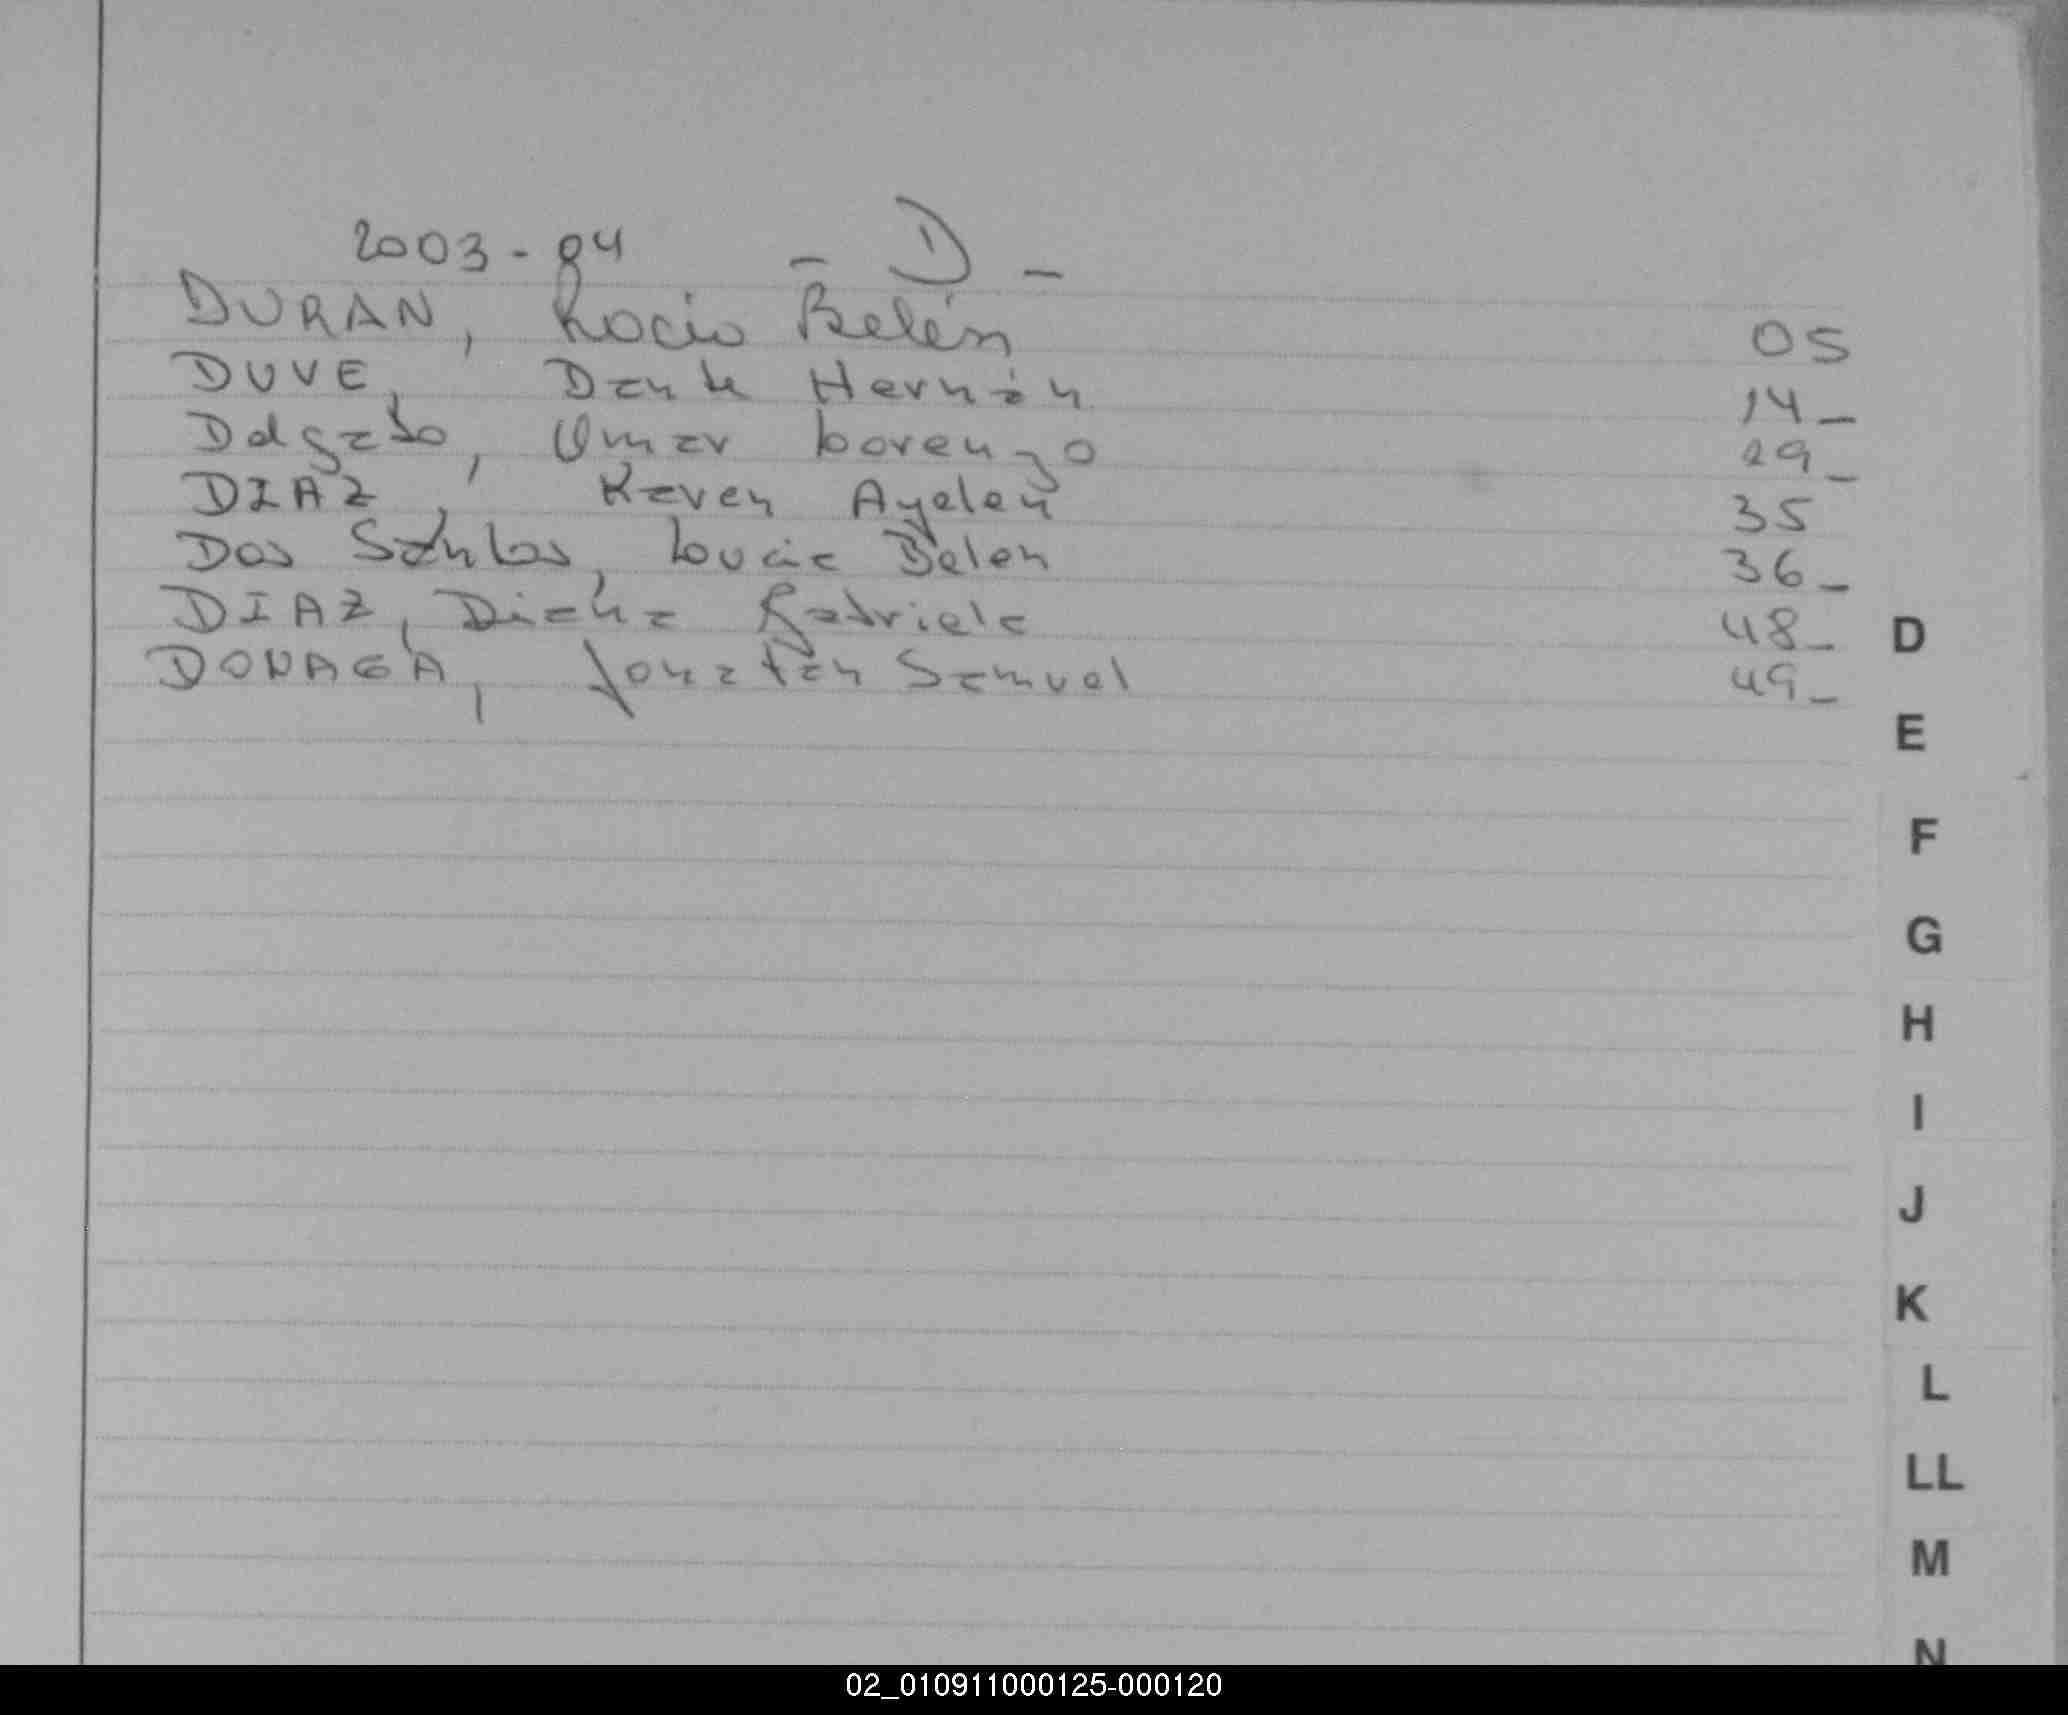 2003-04 - D -
DURAN, Rocio Belén 05
DUVE, Dante Hernán 14_
Delgado, Omar Lorenzo 29_
DIAZ, Karen Ayelen 35
Dos Santos, Lucia Belen 36_
DIAZ, Diana Gabriela 48_
DONAGA, Jonatan Samuel 49_
D
E
F
G
H
I
J
K
L
LL
M
N
02_010911000125-000120